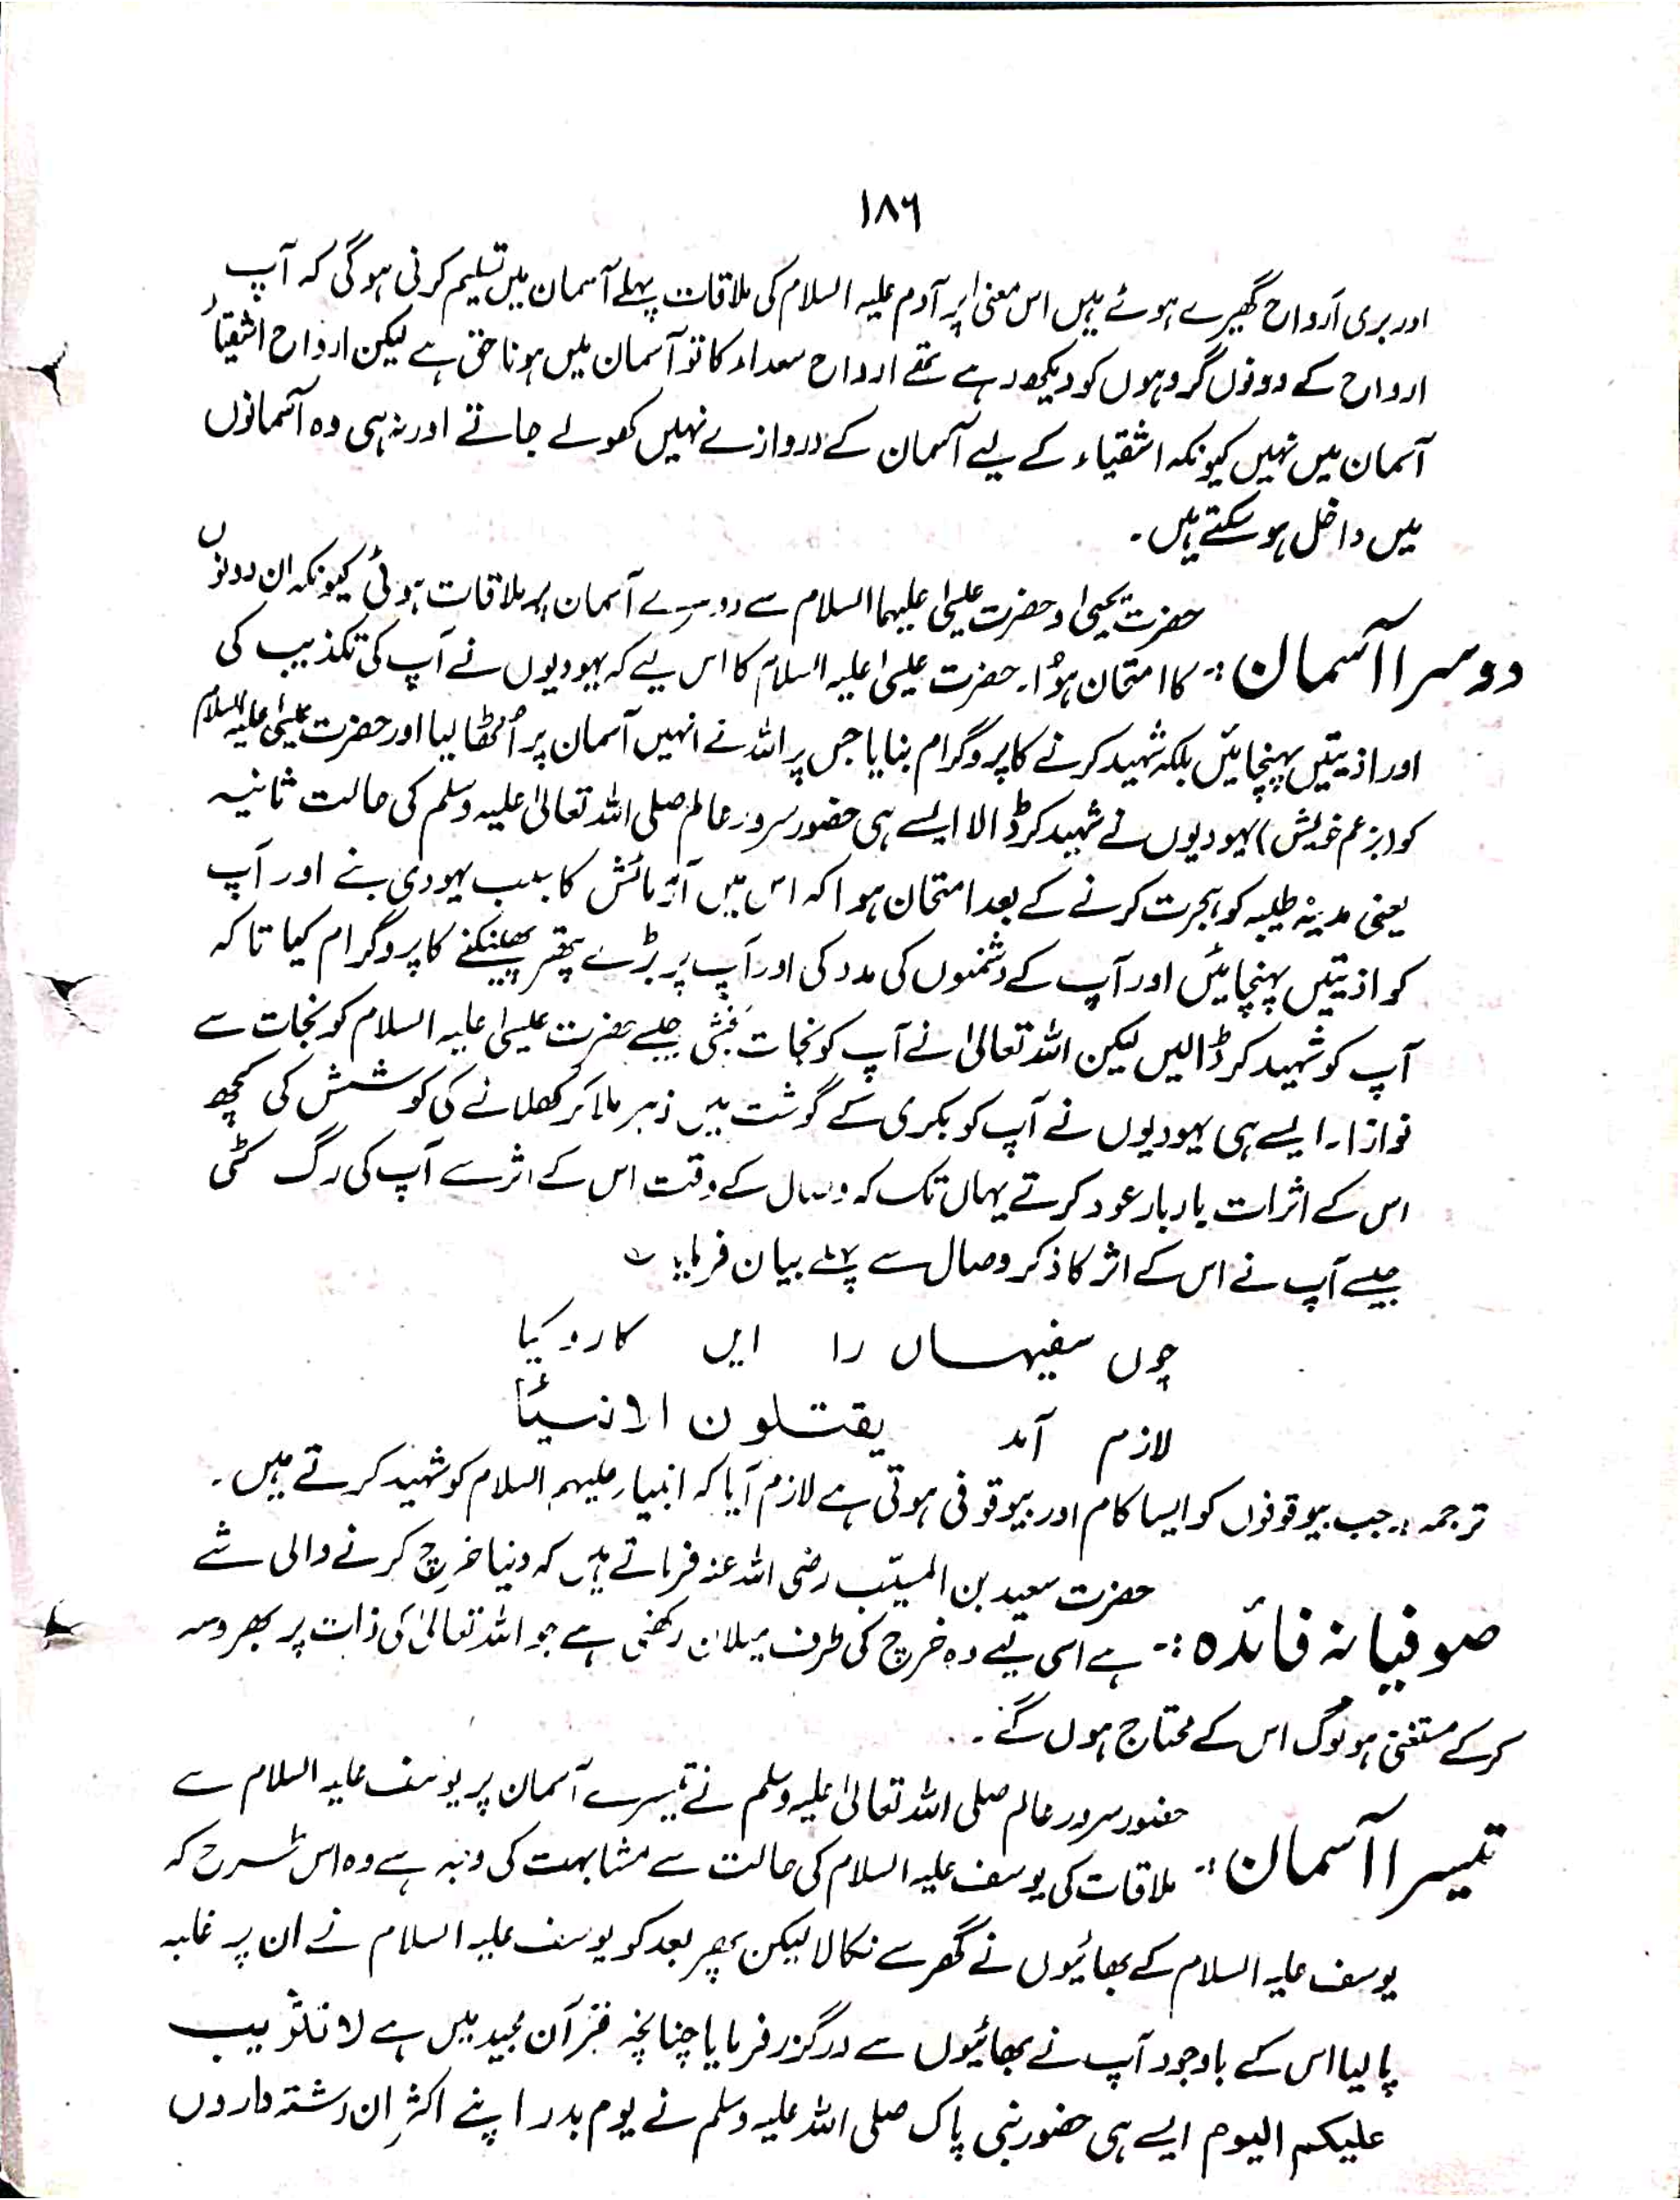 ۱۸۶
اور بری اَرواح گھیرے ہوئے ہیں اس معنیٰ پر آدم علیہ السلام کی ملاقات پہلے آسمان میں تسلیم کرنی ہوگی کہ آپ
ارواح کے دونوں گروہوں کو دیکھ رہے تھے ارواح سعداء کا تو آسمان میں ہونا حق ہے لیکن ارواح اشقیاء
آسمان میں نہیں کیونکہ اشقیاء کے لیے آسمان کے دروازے نہیں کھولے جاتے اور نہ ہی وہ آسمانوں
میں داخل ہو سکتے ہیں۔
حضرت یحییٰ و حضرت عیسیٰ علیہما السلام سے دوسرے آسمان پہ ملاقات ہوئی کیونکہ ان دونوں
دوسرا آسمان :- کا امتحان ہؤا۔ حضرت عیسیٰ علیہ السلام کا اس لیے کہ یہودیوں نے آپ کی تکذیب کی
اور اذیتیں پہنچائیں بلکہ شہید کرنے کا پروگرام بنایا جس پر اللہ نے انہیں آسمان پر اُٹھا لیا اور حضرت عیسیٰ علیہ السلام
کو (بزعم خویش) یہودیوں نے شہید کر ڈالا ایسے ہی حضور سرور عالم صلی اللہ تعالیٰ علیہ وسلم کی حالت ثانیہ
یعنی مدینہ طیبہ کو ہجرت کرنے کے بعد امتحان ہوا کہ اس میں آزمائش کا سبب یہودی بنے اور آپ
کو اذیتیں پہنچائیں اور آپ کے دشمنوں کی مدد کی اور آپ پر بڑے پتھر پھینکنے کا پروگرام کیا تاکہ
آپ کو شہید کر ڈالیں لیکن اللہ تعالیٰ نے آپ کو نجات بخشی جیسے حضرت عیسیٰ علیہ السلام کو نجات سے
نوازا۔ ایسے ہی یہودیوں نے آپ کو بکری کے گوشت میں زہر ملا کر کھلانے کی کوشش کی کچھ
اس کے اثرات بار بار عود کرتے یہاں تک کہ وصال کے وقت اس کے اثر سے آپ کی رگ کٹی
جیسے آپ نے اس کے اثر کا ذکر وصال سے پہلے بیان فرمایا؎
چوں سفیہاں را ایں کار و کیا
لازم آمد یقتلون الانبیأ
ترجمہ :۔ جب بیوقوفوں کو ایسا کام اور بیوقوفی ہوتی ہے لازم آیا کہ انبیاء علیہم السلام کو شہید کرتے ہیں۔
حضرت سعید بن المسیّب رضی اللہ عنہ فرماتے ہیں کہ دنیا خرچ کرنے والی شے
صوفیانہ فائدہ :- ہے اسی لیے وہ خرچ کی طرف میلان رکھتی ہے جو اللہ تعالیٰ کی ذات پر بھروسہ
کر کے مستغنی ہو لوگ اس کے محتاج ہوں گے۔
حضور سرور عالم صلی اللہ تعالیٰ علیہ وسلم نے تیسرے آسمان پر یوسف علیہ السلام سے
تیسرا آسمان :- ملاقات کی یوسف علیہ السلام کی حالت سے مشابہت کی وجہ ہے وہ اس طرح کہ
یوسف علیہ السلام کے بھائیوں نے گھر سے نکالا لیکن پھر بعد کو یوسف علیہ السلام نے ان پر غلبہ
پا لیا اس کے باوجود آپ نے بھائیوں سے درگزر فرمایا چنانچہ قرآن مجید میں ہے لا تثریب
علیکم الیوم ایسے ہی حضور نبی پاک صلی اللہ علیہ وسلم نے یوم بدر اپنے اکثر ان رشتہ داروں